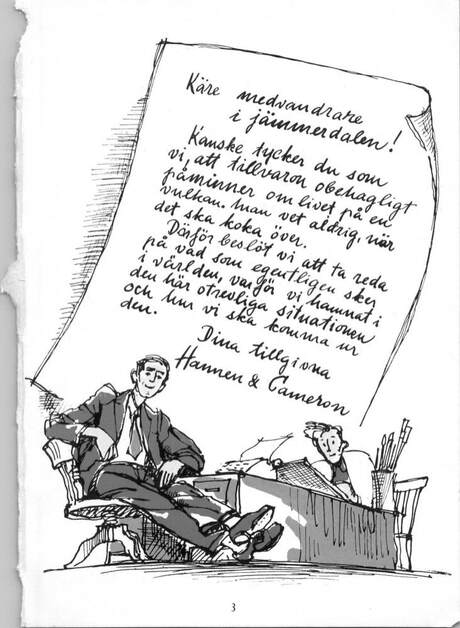 Käre medvandrare
i jämmerdalen!
Kanske tycker du som
vi, att tillvaron obehagligt
påminner om livet på en
vulkan. Man vet aldrig, när
det ska koka över.
Därför beslöt vi att ta reda
på vad som egentligen sker
i världen, varför vi hamnat i
den här otrevliga situationen
och hur vi ska komma ur
den.
Dina tillgivna
Hannen & Cameron
3